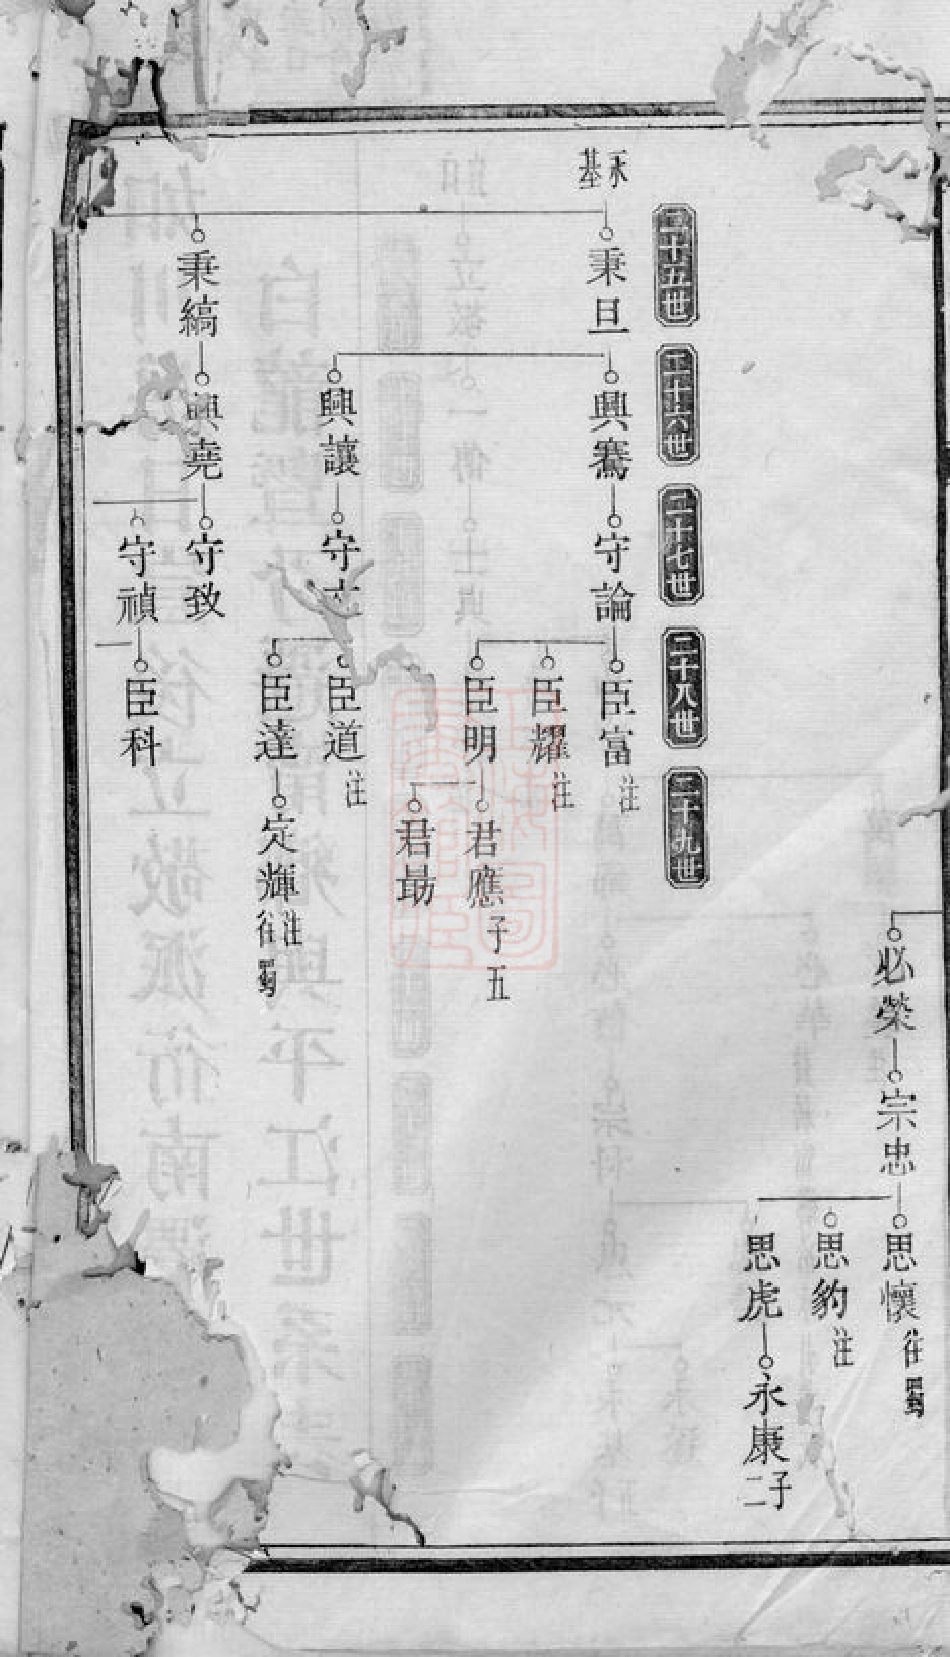 必榮
宗忠
思懷 往蜀
思豹 注
思虎
永康 子二
二十五世
二十六世
二十七世
二十八世
二十九世
永基
秉旦
興騫
守論
臣富 注
臣耀 注
臣明
君應 子五
君勗
興讓
守
臣道 注
臣達
定輝 注往蜀
秉縞
興堯
守致
守禎
臣科